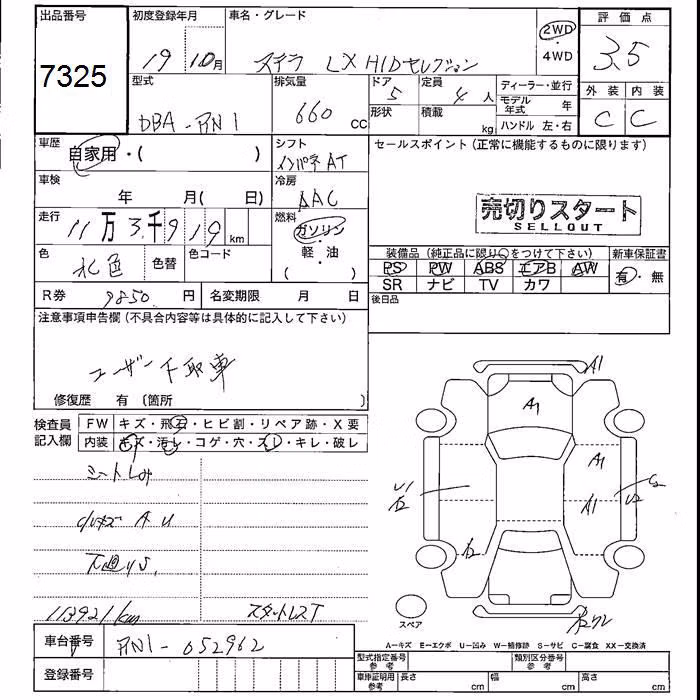 出品番号
7325
初度登録年月
19 10月
車名・グレード
ステラ LX HIDセレクション
2WD
・
4WD
評価点
3.5
型式
DBA-RN1
排気量
660 cc
ドア
5
形状
定員
4 人
積載
kg
ディーラー・並行
モデル年式 年
ハンドル 左・右
外装 内装
C C
車歴
自家用・( )
シフト
インパネ AT
セールスポイント(正常に機能するものに限ります)
車検
年 月( 日)
冷房
AAC
売切りスタート
SELLOUT
走行
11万3千919km
燃料
ガソリン
・
軽油
( )
色
水色
色替
色コード
装備品(純正品に限り○をつけて下さい)
新車保証書
PS PW ABS エアB AW
有・無
SR ナビ TV カワ
R券 9850円
名変期限 月 日
後日品
注意事項申告欄(不具合内容等は具体的に記入して下さい)
ユーザー下取車
修復歴 有(箇所 )
検査員記入欄
FW キズ・飛石・ヒビ割・リペア跡・X要
内装 キズ・汚レ・コゲ・穴・スレ・キレ・破レ
A1
A1
A1
A1
U2
シート
A U
下廻りS,
113921km
スペア
A=キズ E=エクボ U=凹み W=補修跡 S=サビ C=腐食 XX=交換済
車台番号
RN1-052962
登録番号
型式指定番号
参考
類別区分番号
参考
車庫証明用
参考
長さ cm
幅 cm
高さ cm